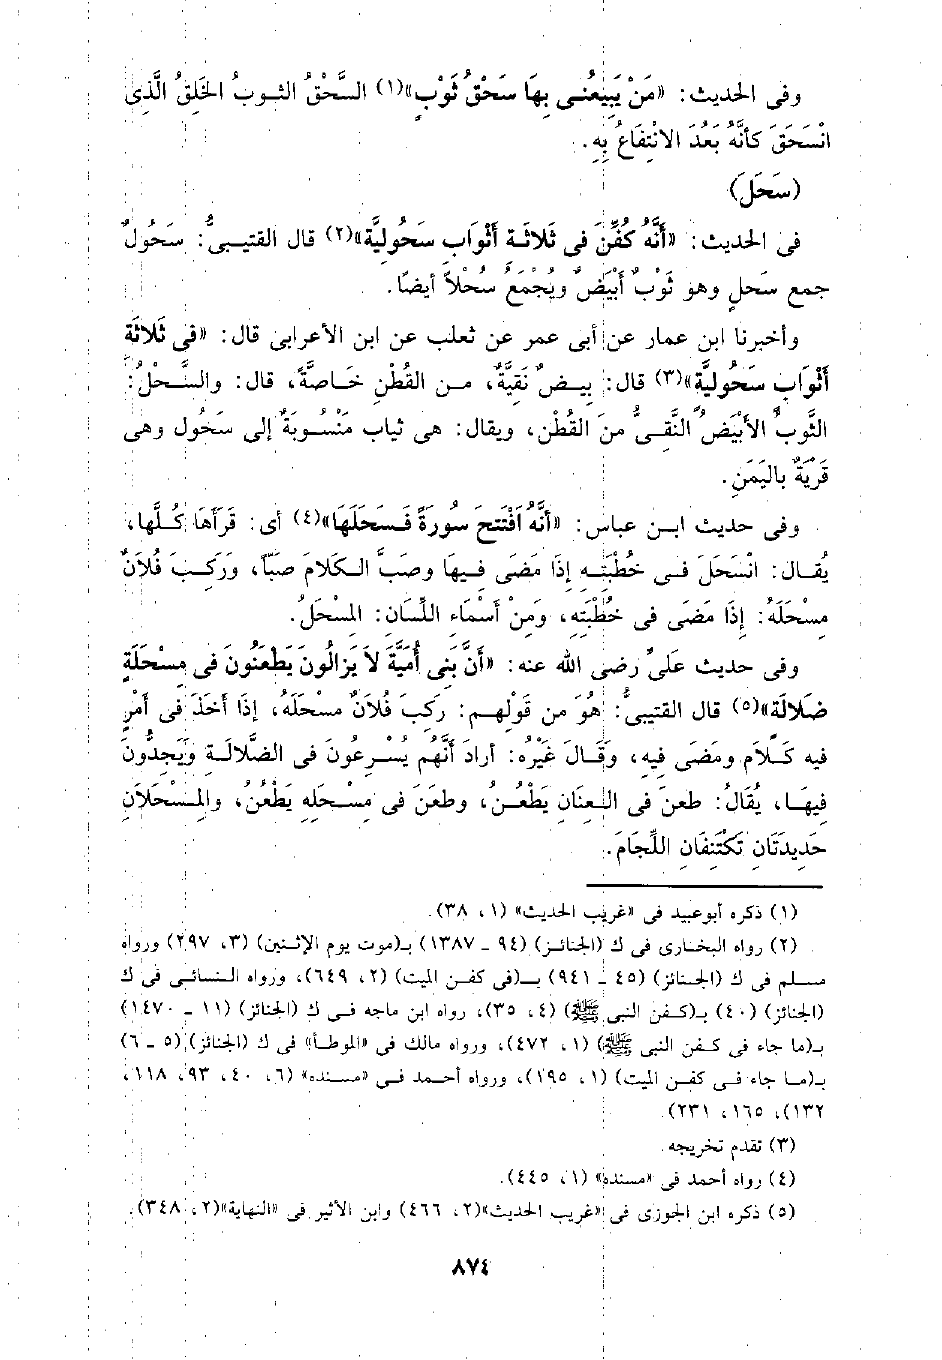 وفى الحديث: «مَنْ يَبِيعُنى بِهَا سَحْقُ ثَوْبٍ»(١) السَّحْقُ الثوبُ الخَلِقُ الَّذِى
انْسَحَقَ كأنَّهُ بَعُدَ الانْتِفَاعُ بِهِ.
(سَحَلَ)
فى الحديث: «أَنَّه كُفِّنَ فى ثَلاثَةِ أثْوَابٍ سَحُولِيَّة»(٢) قال القتيبىُّ: سَحُولٌ
جمع سَحلٍ وهو ثَوْبٌ أَبْيَضُ ويُجْمَعُ سُحْلاً أيضًا.
وأخبرنا ابن عمار عن أبى عمر عن ثعلب عن ابن الأعرابى قال: «فى ثَلاثَة
أَثْوَابٍ سَحُولِيَّة»(٣) قال: بِيضٌ نَقِيَّةٌ، من القُطْنِ خَاصَّةً، قال: والسَّحْلُ:
الثَّوبُ الأَبْيَضُ النَّقِىُّ منَ القُطْنِ، ويقال: هى ثياب مَنْسُوبَةٌ إلى سَحُول وهى
قَرْيَةٌ بِاليَمَنِ.
وفى حديث ابن عباس: «أنَّهُ افْتَتَحَ سُورَةً فَسَحَلَهَا»(٤) أى: قَرَأَهَا كُلَّها،
يُقال: انْسَحَلَ فى خُطْبَتِه إذَا مَضَى فِيهَا وصَبَّ الكَلامَ صَبّاً، ورَكِبَ فُلاَنٌ
مِسْحَلَهُ: إذَا مَضَى فى خُطْبَتِهِ، ومَنْ أَسْمَاء اللِّسَان: المِسْحَلُ.
وفى حديث علىٍّ رضى الله عنه: «أنَّ بَنِى أُمَيَّةَ لاَ يَزَالُونَ يَطْعَنُونَ فى مِسْحَلَةٍ
ضَلاَلَة»(٥) قال القتيبىُّ: هُوَ من قَوْلِهِم: رَكِبَ فُلاَنٌ مسْحَلَهُ، إذَا أَخَذَ فى أَمْرٍ
فيه كَلاَم ومَضَى فِيهِ، وقَالَ غَيْرُه: أرادَ أَنَّهُم يُسْرِعُونَ فى الضَّلالَةِ ويَجِدُّونَ
فِيهَا، يُقَالُ: طعنَ فى العِنَانِ يَطْعُنُ، وطعَنَ فى مِسْحَلِهِ يَطْعُنُ، والمِسْحَلاَنِ
حَدِيدَتَانِ تَكْتَنِفَانِ اللِّجَامَ.
(١) ذكره أبوعبيد فى «غريب الحديث» (١، ٣٨).
(٢) رواه البخارى فى ك (الجنائز) (٩٤ - ١٣٨٧) بـ(موت يوم الإثنين) (٣، ٢٩٧) ورواه
مسلم فى ك (الجنائز) (٤٥ - ٩٤١) بـ(فى كفن الميت) (٢، ٦٤٩)، ورواه النسائى فى ك
(الجنائز) (٤٠) بـ(كفن النبى ﷺ) (٤، ٣٥)، رواه ابن ماجه فى ك (الجنائز) (١١ - ١٤٧٠)
بـ(ما جاء فى كفن النبى ﷺ) (١، ٤٧٢)، ورواه مالك فى «الموطأ» فى ك (الجنائز) (٥ - ٦)
بـ(ما جاء فى كفن الميت) (١، ١٩٥)، ورواه أحمد فى «مسنده» (٦، ٤٠، ٩٣، ١١٨،
١٣٢)، ١٦٥، ٢٣١).
(٣) تقدم تخريجه.
(٤) رواه أحمد فى «مسنده» (١، ٤٤٥).
(٥) ذكره ابن الجوزى فى «غريب الحديث»(٢، ٤٦٦) وابن الأثير فى «النهاية»(٢، ٣٤٨).
٨٧٤